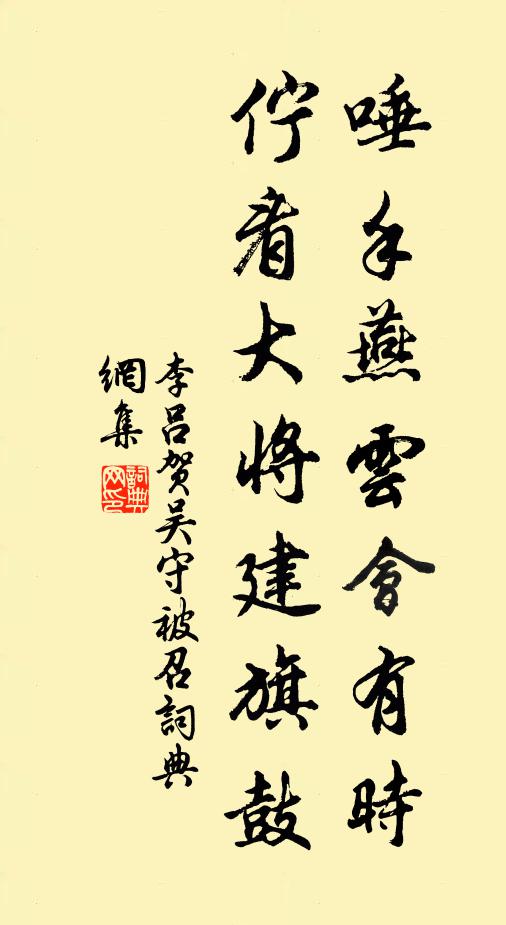 唾手燕雲會有時
佇看大將建旗鼓
李呂賀吴守被召詞典
網集
詞典
网印